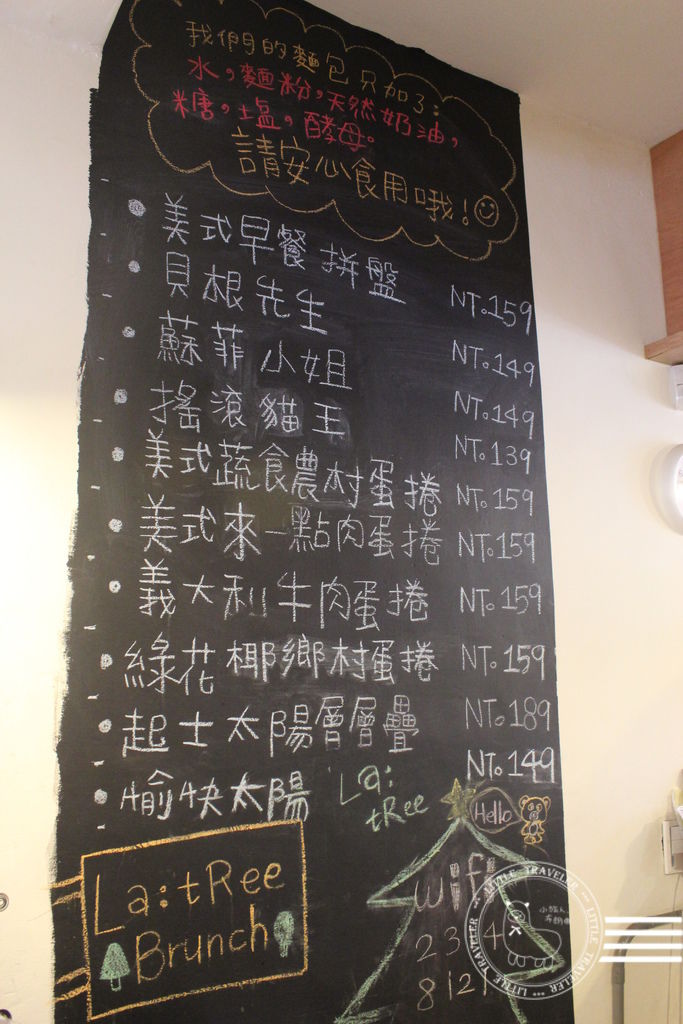 我們的麵包只加了:
水,麵粉,天然奶油,
糖,塩,酵母。
請安心食用哦!
美式早餐拼盤 NT.159
貝根先生 NT.149
蘇菲小姐 NT.149
搖滾貓王 NT.139
美式蔬食農村蛋捲 NT.159
美式來一點肉蛋捲 NT.159
義大利牛肉蛋捲 NT.159
綠花椰鄉村蛋捲 NT.159
起士太陽層層疊 NT.189
愉快太陽 NT.149
La:
tRee
Hello
La:tRee
Brunch
wifi
LITTLE TRAVELER
小旅人